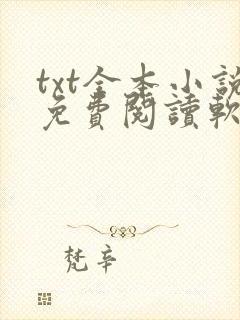 txt全本小說
免費閱讀軟
梵辛